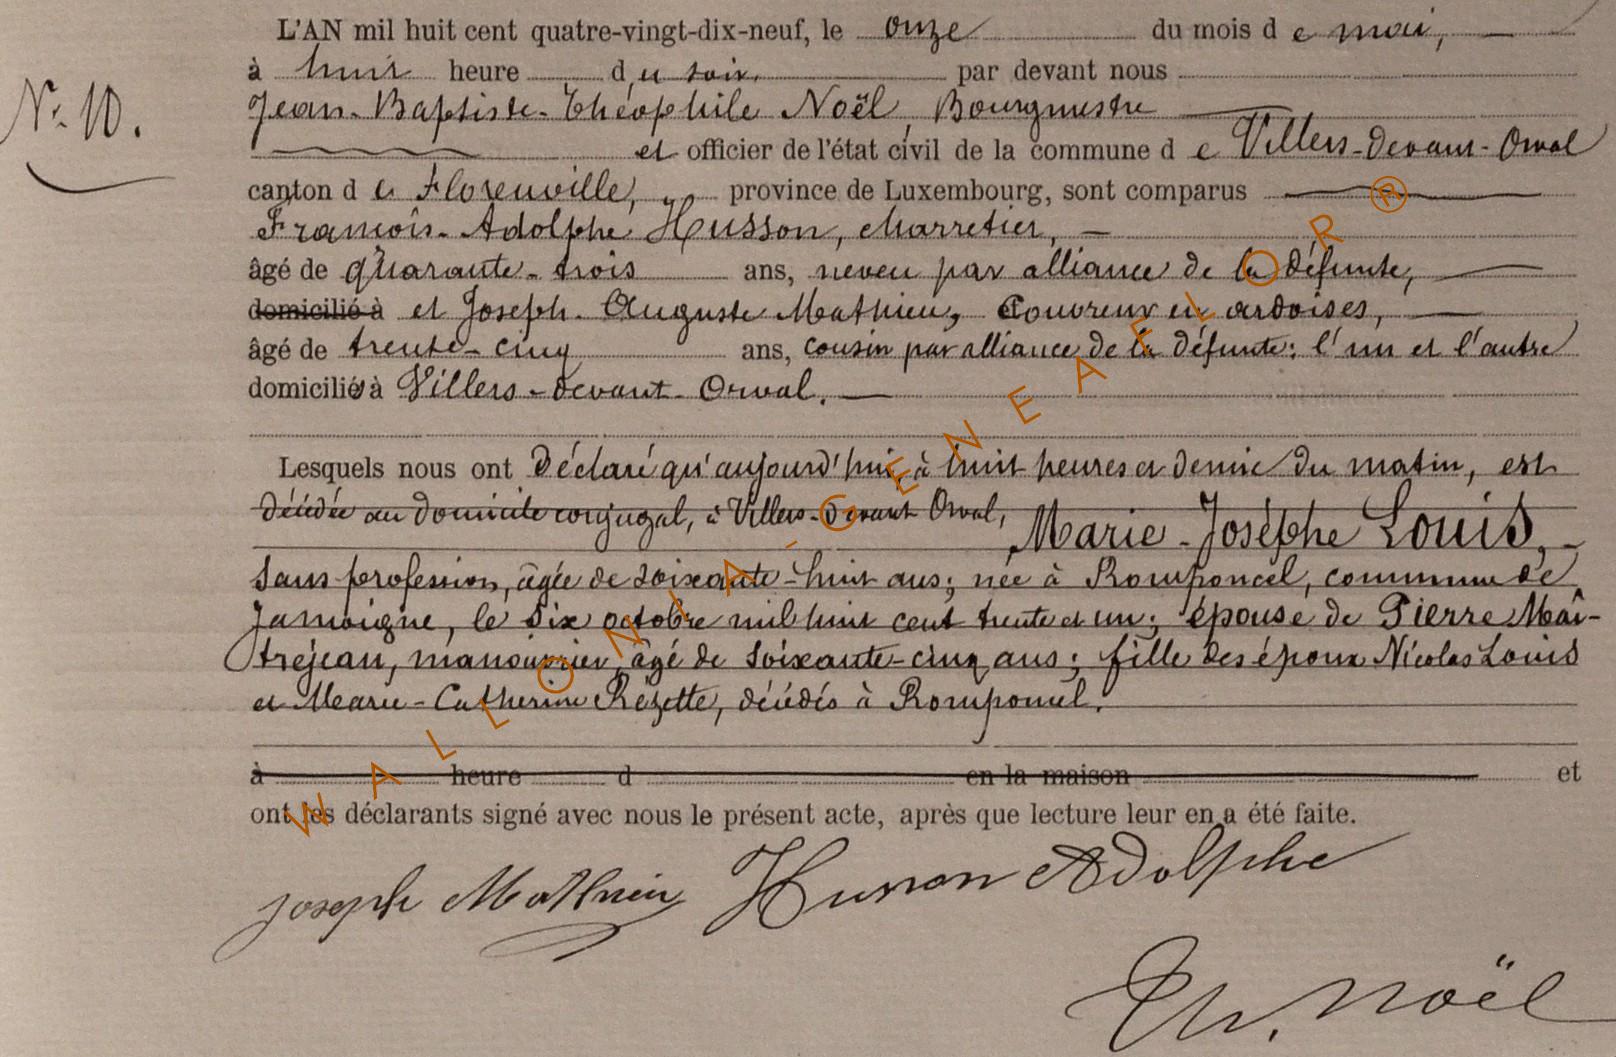 L'AN mil huit cent quatre-vingt-dix-neuf, le onze du mois de mai,
à huit heure du soir, par devant nous
N.º 10.
Jean-Baptiste-Théophile Noël Bourgmestre
et officier de l'état civil de la commune de Villers-devant-Orval
canton de Florenville, province de Luxembourg, sont comparus
François-Adolphe Husson, charretier,
âgé de quarante-trois ans, neveu par alliance de la défunte,
domicilié à et Joseph-Auguste Mathieu, couvreur en ardoises,
âgé de trente-cinq ans, cousin par alliance de la défunte; l'un et l'autre
domiciliés à Villers-devant-Orval.
Lesquels nous ont déclaré qu'aujourd'hui, à huit heures et demie du matin, est
décédée au domicile conjugal, à Villers-Devant Orval, Marie-Joséphe Louis,
sans profession, âgée de soixante-huit ans; née à Romponcel, commune de
Jamoigne, le six octobre mil huit cent trente et un; épouse de Pierre Maî-
trejean, manouvrier, âgé de soixante-cinq ans; fille des époux Nicolas Louis
et Marie-Catherine Rézette, décédés à Romponcel.
à heure d en la maison et
ont les déclarants signé avec nous le présent acte, après que lecture leur en a été faite.
Joseph Mathieu Husson Adolphe
Th. Noël
WALLONIA-GENEAFLOR ®